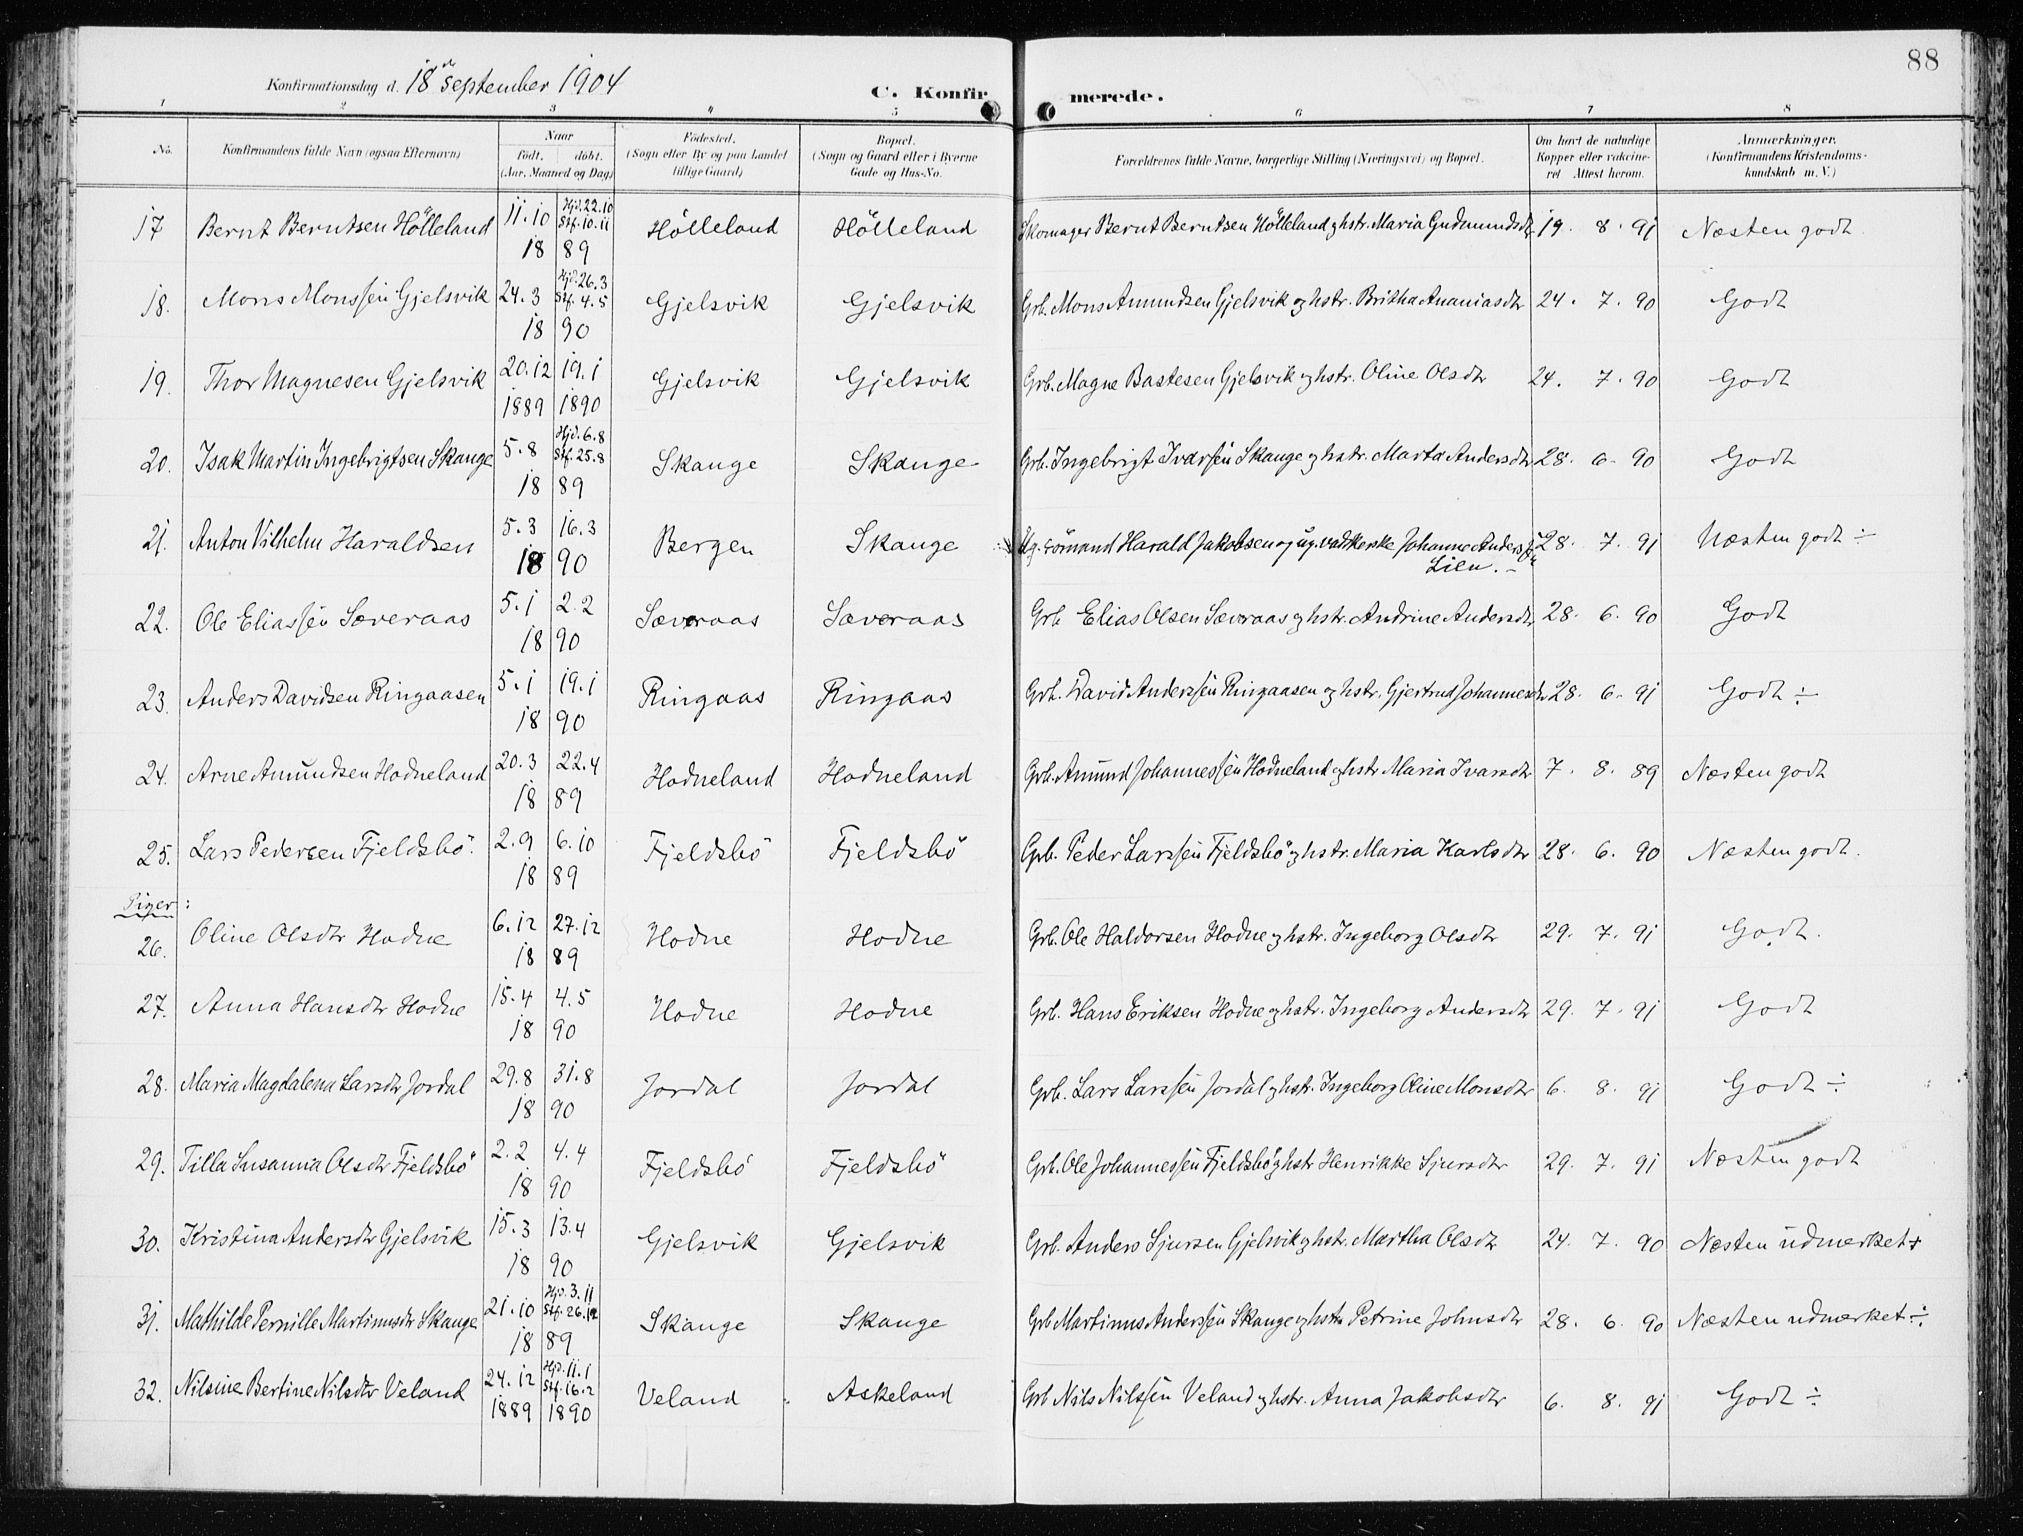 88
Konfirmationsdag d. 18de september 1904
C. Konfirmerede.
1 2 3 4 5 6 7 8
No. Konfirmandens fulde Navn (ogsaa Efternavn) Naar födt. döbt. (Aar, Maaned og Dag) Födested. (Sogn eller By og paa Landet tillige Gaard) Bopæl. (Sogn og Gaard eller i Byerne Gade og Hus-No. Forældrenes fulde Navne, borgerlige Stilling (Næringsvei) og Bopæl. Om havt de naturlige Kopper eller vakcineret Attest herom. Anmærkninger. (Konfirmandens Kristendomskundskab m. V.)
17 Bernt Berntsen Hölleland 11.10 Hjd. 22.10 Stf. 10.11 1889 Hölleland Hölleland Skomager Bernt Berntsen Hölleland og hstr. Maria Gudmundsdtr 19. 8. 91 Næsten godt
18. Mons Monssen Gjelsvik 24.3 Hjd. 26.3 Stf. 4.5 1890 Gjelsvik Gjelsvik Grb. Mons Amundsen Gjelsvik og hstr. Britha Ananiasdtr 24. 7. 90 Godt
19. Thor Magnesen Gjelsvik 20.12 1889 19.1 1890 Gjelsvik Gjelsvik Grb. Magne Bastesen Gjelsvik og hstr. Oline Olsdtr 24. 7. 90 Godt
20. Isak Martin Ingebrigtsen Skauge 5.8 Hjd. 6.8 Stf. 25.8 1889 Skauge Skauge Grb. Ingebrigt Ivarsen Skauge og hstr. Marta Andersdtr 28. 6. 90 Godt
21. Anton Vilhelm Haraldsen 5.3 16.3 1890 Bergen Skauge Ug. Sömand Harald Jakobsen og ug. vadkerske Johanne Andersdtr Lien. 28. 7. 91 Næsten godt ÷
22. Ole Eliassen Sæveraas 5.1 2.2 1890 Sæveraas Sæveraas Grb Elias Olsen Sæveraas og hstr. Andrine Andersdtr 28. 6. 90 Godt
23. Anders Davidsen Ringaasen 5.1 19.1 1890 Ringaas Ringaas Grb. David Anderssen Ringaasen og hstr. Gjertrud Johannesdtr. 28. 6. 91 Godt ÷
24. Arne Amundsen Hodneland 20.3 22.4 1889 Hodneland Hodneland Grb. Amund Johannessen Hodneland og hstr Maria Ivarsdtr 7. 8. 89 Næsten godt
25. Lars Pedersen Fjeldsbö. 2.9 6.10 1889 Fjeldsbö Fjeldsbö Grb. Peder Larssen Fjeldsbö og hstr. Maria Karlsdtr 28. 6. 90 Næsten godt.
Piger:
26. Oline Olsdtr Hodne 6.12 27.12 1889 Hodne Hodne Grb. Ole Haldorsen Hodne og hstr. Ingeborg Olsdtr 29. 7. 91 Godt.
27. Anna Hansdtr Hodne 15.4 4.5 1890 Hodne Hodne Grb. Hans Eriksen Hodne og hstr. Ingeborg Andersdtr 29. 7. 91 Godt
28. Maria Magdalena Larsdtr Jordal 29.8 31.8 1890 Jordal Jordal Grb. Lars Larssen Jordal og hstr. Ingeborg Oline Monsdtr 6. 8. 91 Godt ÷
29. Tilla Susanna Olsdtr Fjeldsbö 2.2 4.4 1890 Fjeldsbö Fjeldsbö Grb. Ole Johannessen Fjeldsbö og hstr Henrikke Sjursdtr 29. 7. 91 Næsten godt
30. Kristina Andersdtr Gjelsvik 15.3 13.4 1890 Gjelsvik Gjelsvik Grb. Anders Sjursen Gjelsvik og hstr. Martha Olsdtr 24. 7. 90 Næsten udmerket +
31. Mathilde Pernille Martinusdtr Skauge 21.10 Hjd. 3.11 Stf. 26.12 1889 Skauge Skauge Grb Martinus Anderssen Skauge og hstr Petrine Johnsdtr 28. 6. 90 Næsten udmerket ÷
32. Nilsine Bertine Nilsdtr Veland 24.12 1889 Hjd. 11.1 Stf. 16.2 1890 Veland Askeland Grb Nils Nilssen Veland og hstr. Anna Jakobsdtr 6. 8. 91 Godt ÷